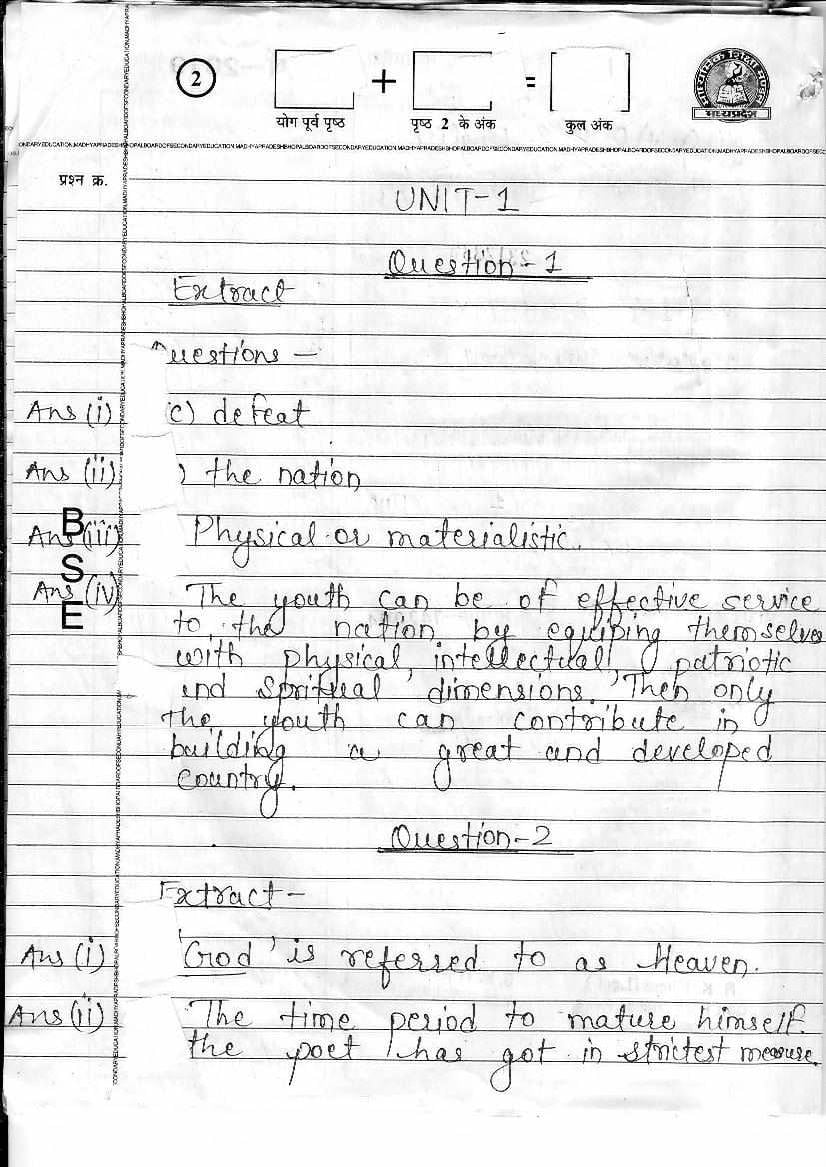 2 + =
योग पूर्व पृष्ठ पृष्ठ 2 के अंक कुल अंक
माध्यमिक शिक्षा मण्डल
मध्यप्रदेश
BOARDOFSECONDARYEDUCATION,MADHYAPRADESHBHOPAL
प्रश्न क्र.
UNIT-1
Question-1
Extract
Questions -
Ans (i) (c) defeat
Ans (ii) ) the nation
Ans (iii) Physical or materialistic.
Ans (iv) The youth can be of effective service
to the nation by equiping themselves
with physical, intellectual, patriotic
and Spritual dimensions. Then only
the youth can contribute in
building a great and developed
country.
BSE
Question-2
Extract -
Ans (i) 'God' is referred to as Heaven.
Ans (ii) The time period to mature himself.
the poet has got in strictest measure.